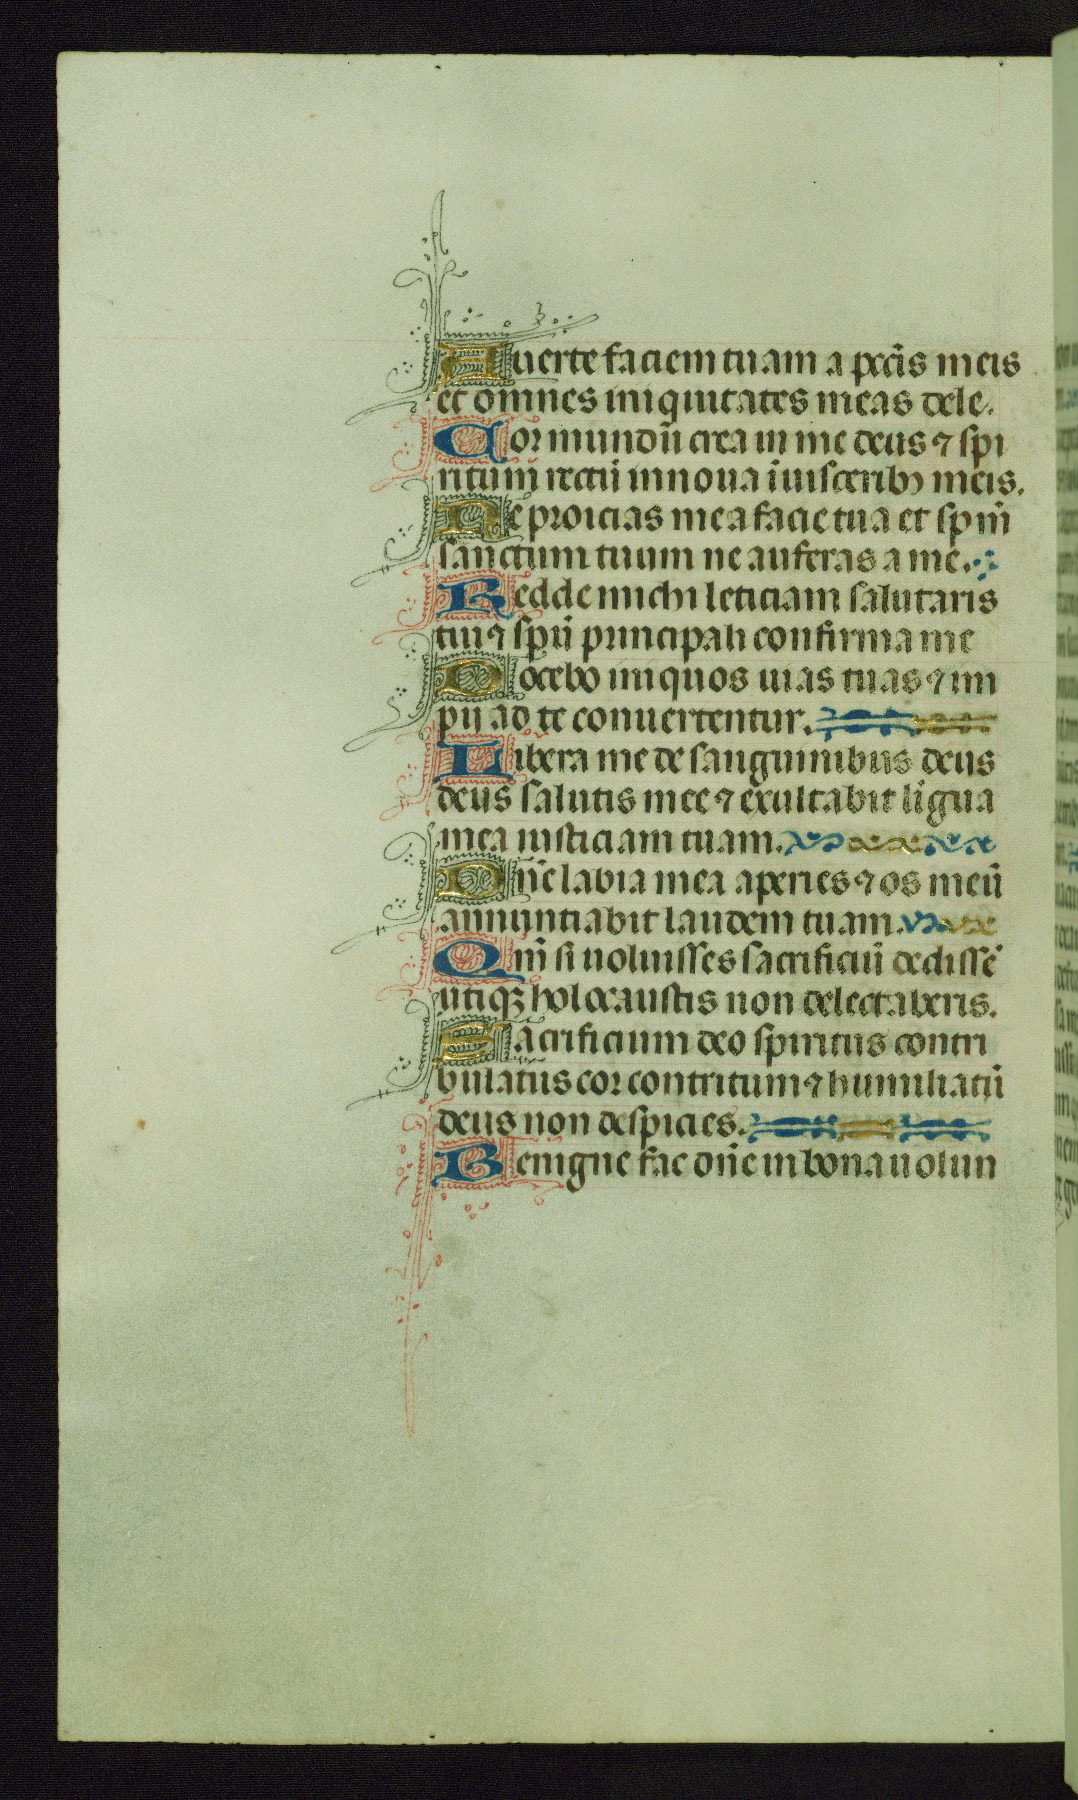 Auerte faciem tuam a pccīs meis
et omnes iniquitates meas dele.
Cor mundū crea in me deus ⁊ spi
ritum rectū innoua ī uisceribꝫ meis.
Ne proicias me a facie tua et spm̄
sanctum tuum ne auferas a me.
Redde michi leticiam salutaris
tui ⁊ spū principali confirma me
Docebo iniquos uias tuas ⁊ im
pij ad te conuertentur.
Libera me de sanguinibus deus
deus salutis mee ⁊ exultabit līgua
mea iusticiam tuam.
Dn̄e labia mea aperies ⁊ os meū
annuntiabit laudem tuam.
Qm̄ si uoluisses sacrificiū dedissē
utiqꝫ holocaustis non delectaberis.
Sacrificium deo spiritus contri
bulatus cor contritum ⁊ humiliatū
deus non despicies.
Benigne fac dn̄e in bona uolun